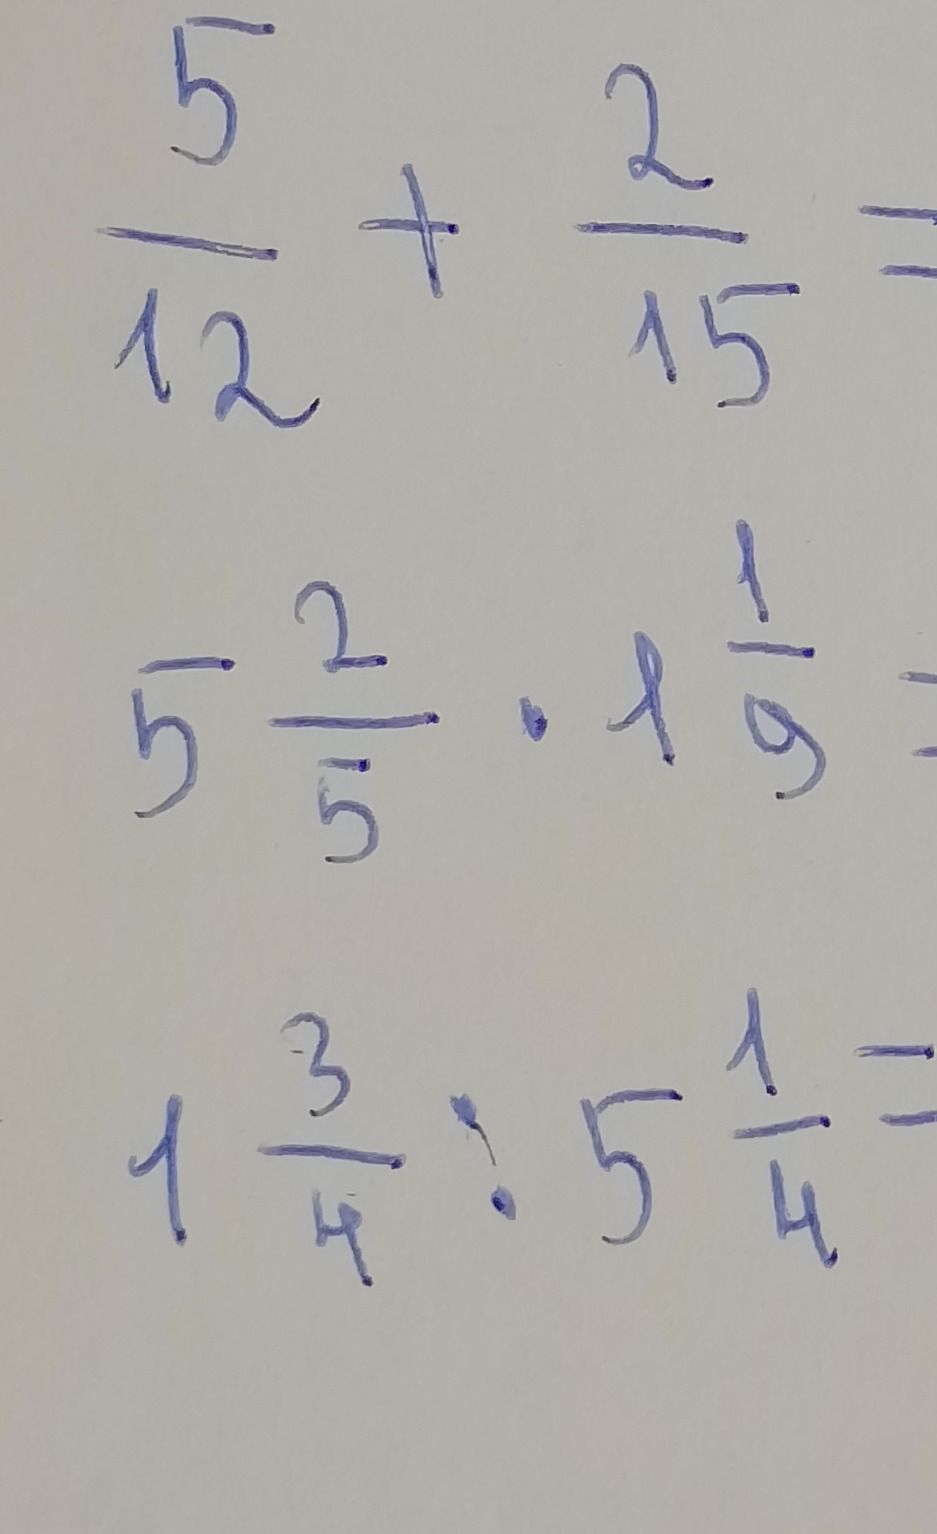 5/12 + 2/15 =
5 2/5 · 1 1/9 =
1 3/4 : 5 1/4 =